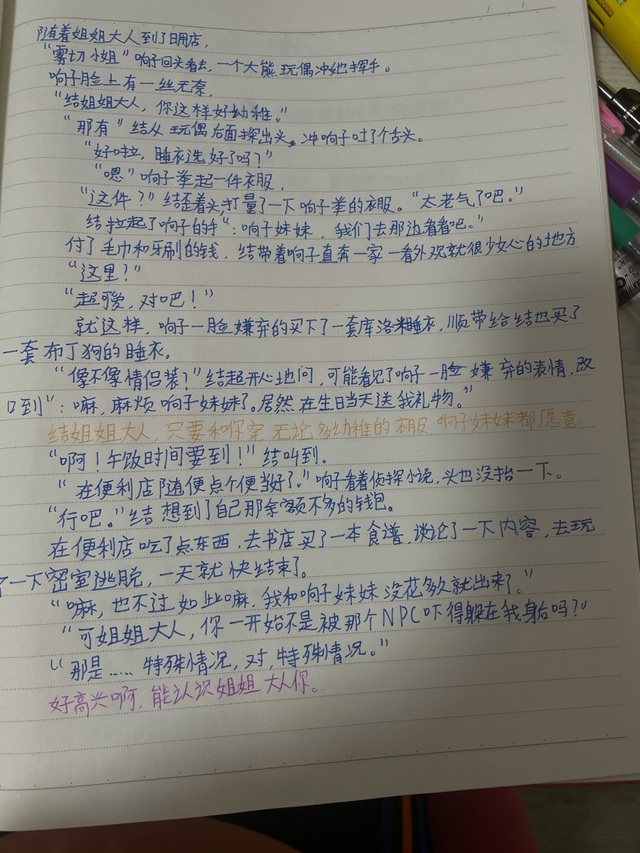 随着姐姐大人到了日用店,
“雾切小姐”响子回头看去,一个大熊玩偶冲她挥手。
响子脸上有一丝无奈,
“结姐姐大人,你这样好幼稚。”
“那有”结从玩偶后面探出头,冲响子吐了个舌头。
“好啦,睡衣选好了吗?”
“嗯”响子拳起一件衣服,
“这件?”结歪着头,打量了一下响子拳的衣服。“太老气了吧。”
结拉起了响子的手“:响子妹妹,我们去那边看看吧。”
付了毛巾和牙刷的钱,结带着响子直奔一家一看外观就很少女心的地方
“这里?”
“超可爱,对吧!”
就这样,响子一脸嫌弃的买下了一套库洛米睡衣,顺带给结也买了
一套布丁狗的睡衣。
“像不像情侣装?”结超开心地问,可能看见了响子一脸嫌弃的表情,改
口到“:嘛,麻烦响子妹妹了,居然在生日当天送我礼物。”
结姐姐大人,只要和你穿 无论多幼稚的衣服 响子妹妹都愿意
“啊!午饭时间要到!”结叫到。
“在便利店随便点个便当好了。”响子看着侦探小说,头也没抬一下。
“行吧。”结想到了自己那余额不多的钱包。
在便利店吃了点东西,去书店买了一本食谱,谈论了一下内容,去玩
了一下密室逃脱,一天就快结束了。
“嘛,也不过如此嘛,我和响子妹妹没花多久就出来了。”
“可姐姐大人,你一开始不是被那个NPC吓得躲在我身后吗?”
“那是……特殊情况,对,特殊情况。”
好高兴啊,能认识姐姐大人你。